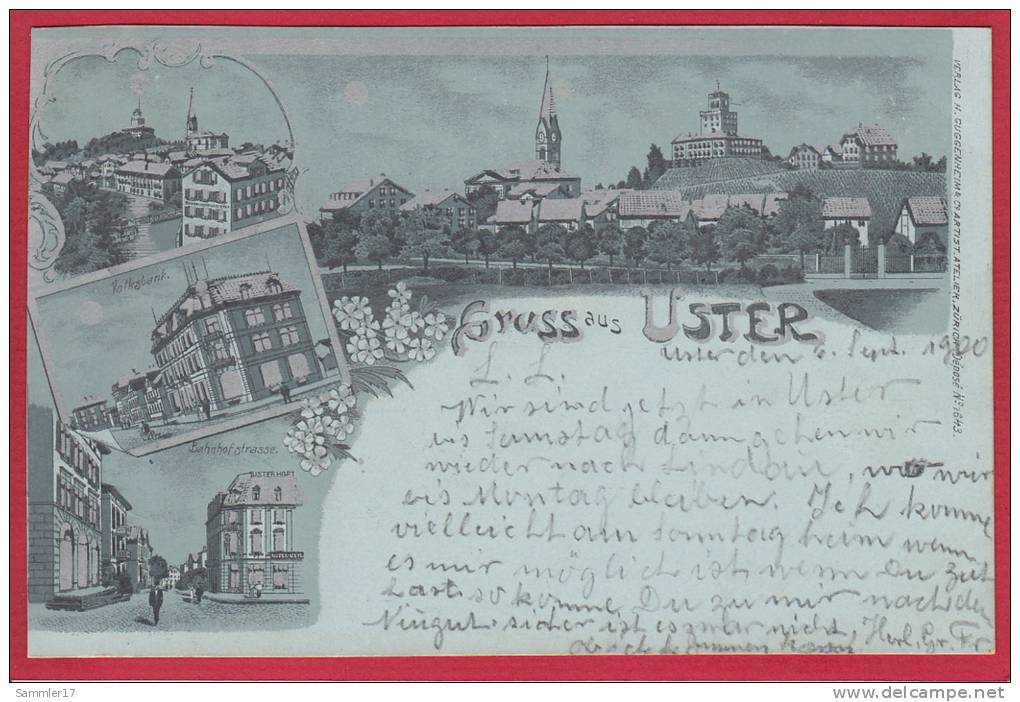 Volksbank.
Bahnhofstrasse.
USTERHOF
Gruss aus USTER
VERLAG H. GUGGENHEIM & Cº ARTIST. ATELIER, ZÜRICH. Nº 1643.
Uster den 6. Sept. 1900
L. L.
Wir sind jetzt in Uster
bis Samstag dann gehen wir
wieder nach Lindau, wo wir
bis Montag bleiben. Ich komme
vielleicht am Sonntag heim wenn
es mir möglich ist wenn Du Zeit
hast so komme Du zu mir nach den
sicher ist es zwar nicht, Herl. Gr. Fr
Sammler17
www.delcampe.net